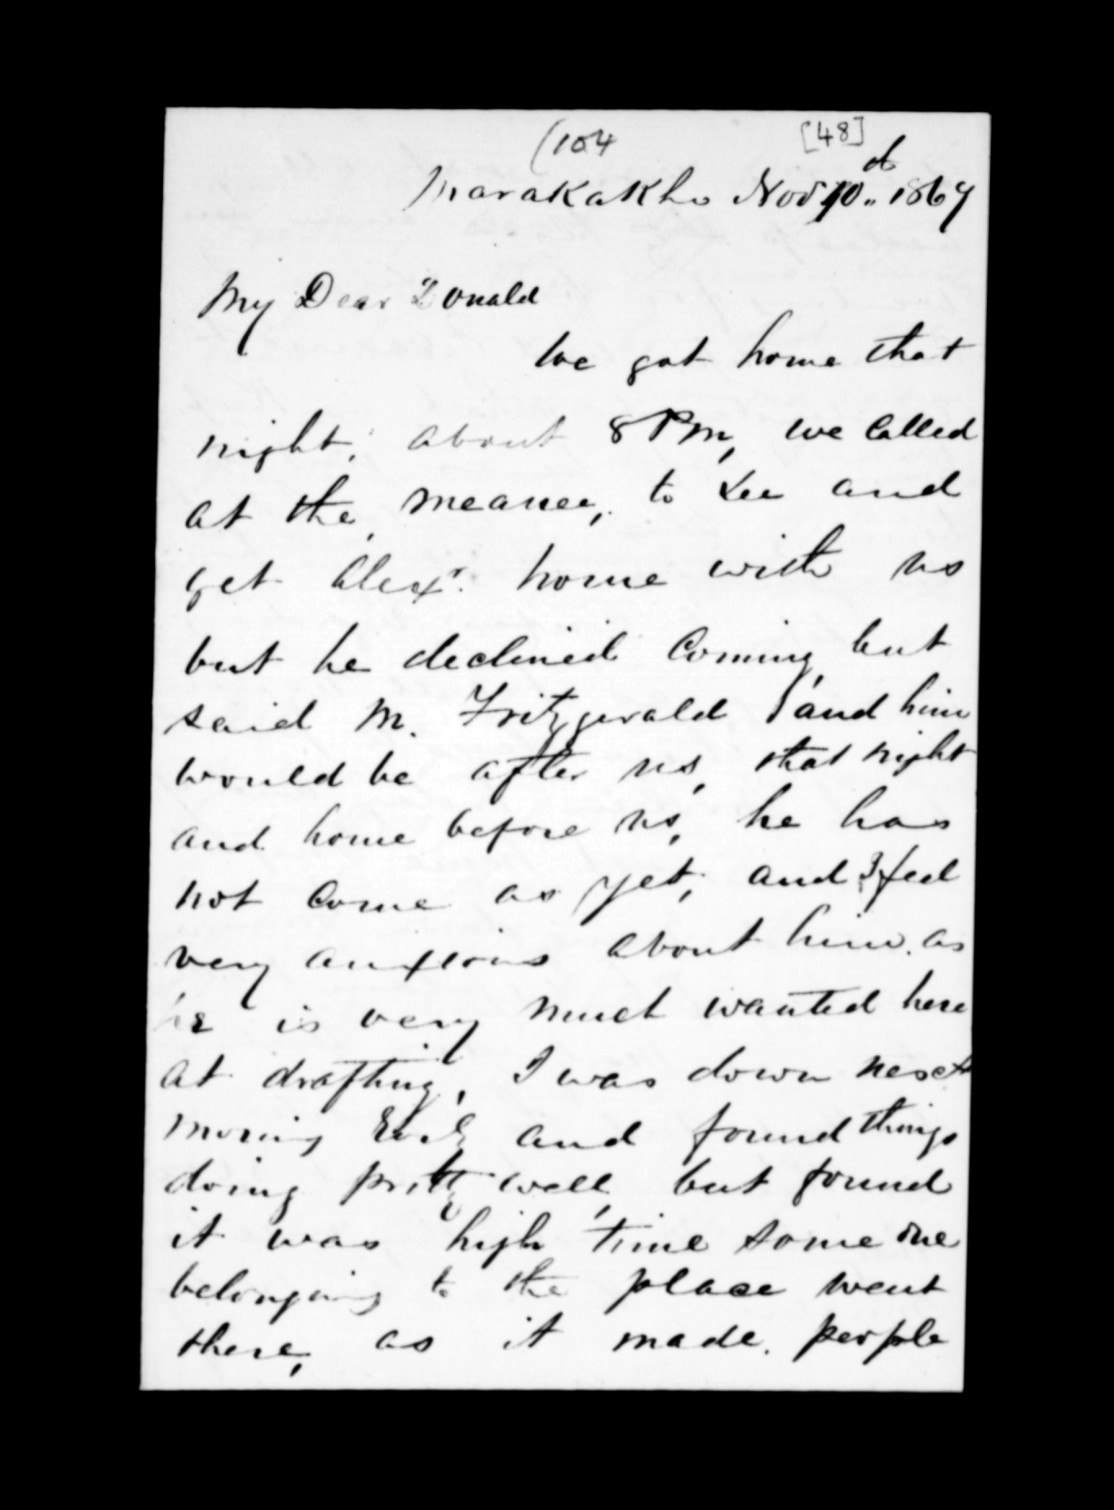 (104 [48]
Marakakho Nov 10th 1867
My Dear Donald
We got home that
night, about 8 PM, we Called
at the, Meanee, to See and
get Alexr. home with us
but he declined Coming, but
said M. Fritzgerald and him
would be after us, that night
and home before us, he has
not come as yet, and I feel
very anxious about him. as
he is very much wanted here
at drafting, I was down next
morning and found things
doing pritty well, but found
it was high time some one
belonging to the place went
there, as it made. people